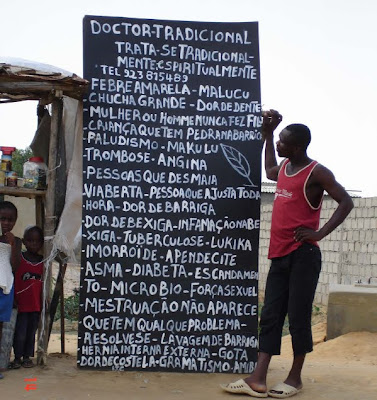 DOCTOR-TRADICIONAL
TRATA-SE TRADICIONAL-
MENTE, ESPIRITUALMENTE
TEL 923815489
FEBRE AMARELA-MALUCU
CHUCHA GRANDE-DOR DE DENTE
MULHER OU HOMEM NUNCA FEZ FIL
CRIANÇA QUE TEM PEDRA NA BARRIG
PALUDISMO-MAKULU
TROMBOSE-ANGINA
PESSOAS QUE DESMAIA
VIA BERTA-PESSOA QUE AJUSTA TODA
HORA-DOR DE BARRIGA
DOR DE BEXIGA-INFAMAÇÃO NA BE-
XIGA-TUBERCULOSE-LUKIKA
IMORROÍ DE-APENDECITE
ASMA-DIABETA-ESCANDAMEN
TO-MICROBIO-FORÇA SEXUEL
MESTRUAÇÃO NÃO APARECE
QUE TEM QUALQUE PROBLEMA-
RESOLVESE-LAVAGEM DE BARRIGA
HERNIA INTERNA EXTERNA-GOTA
DOR DE COSTELA-GRAMATISMO